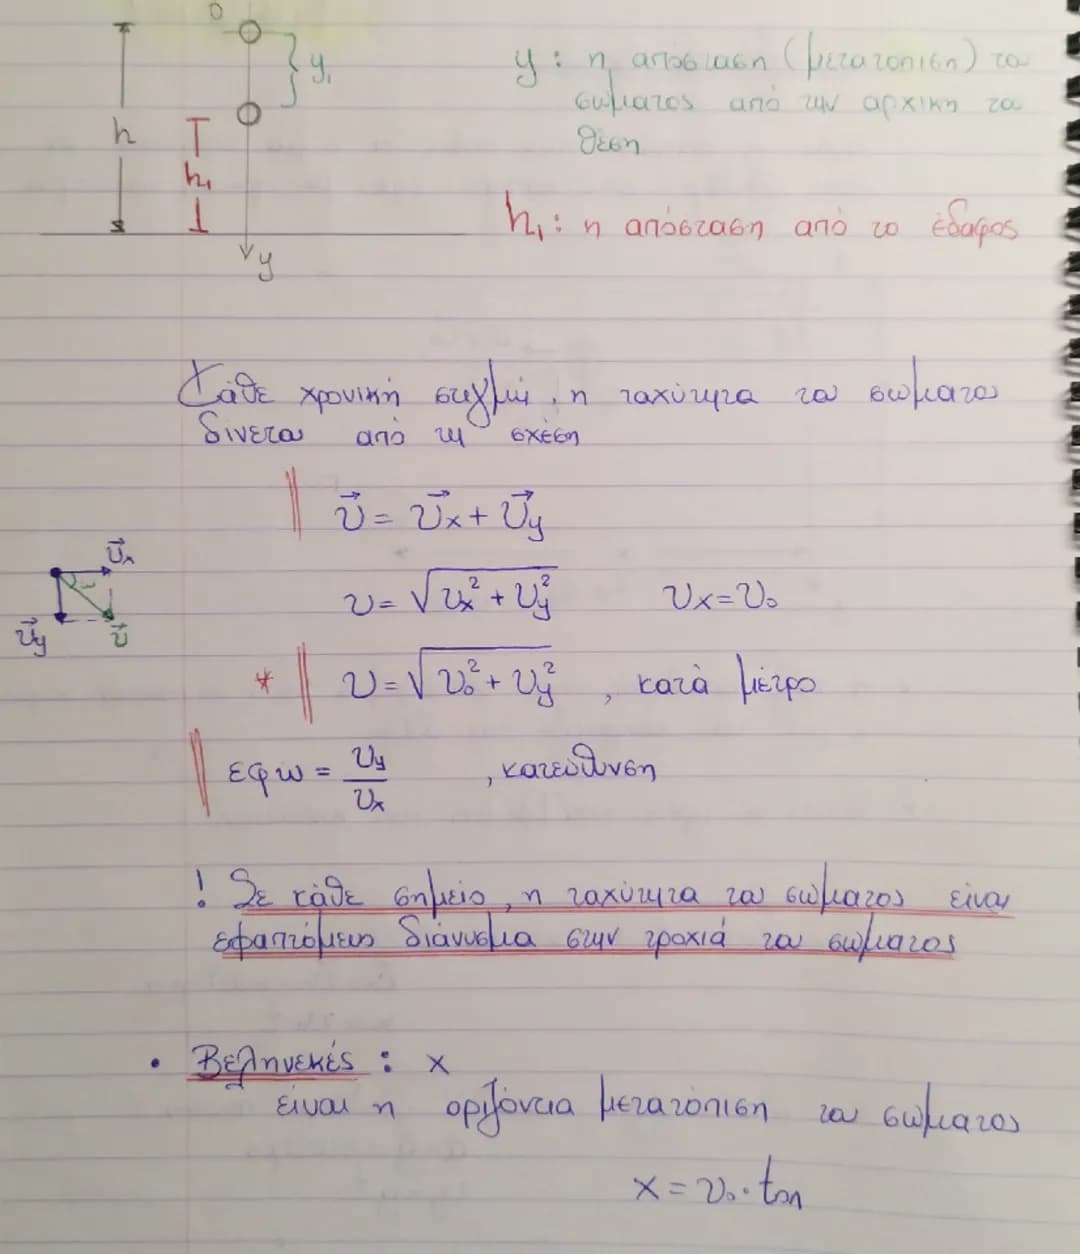 0
y₁
h
h₁
y
y : η απόσταση (μετατόπιση) του
σώματος από την αρχική του
θέση
h₁ : η απόσταση από το έδαφος
Κάθε χρονική στιγμή, η ταχύτητα του σώματος
δίνεται από τη σχέση
v⃗ = v⃗ₓ + v⃗y
v⃗ₓ
v⃗y
v⃗
v = √(vₓ² + vy²) vₓ = v₀
* v = √(v₀² + vy²) , κατά μέτρο
εφω = vy/vₓ , κατεύθυνση
! Σε κάθε σημείο, η ταχύτητα του σώματος είναι
εφαπτόμενο διάνυσμα στην τροχιά του σώματος
• Βεληνεκές : x
είναι η οριζόντια μετατόπιση του σώματος
x = v₀ · tολ